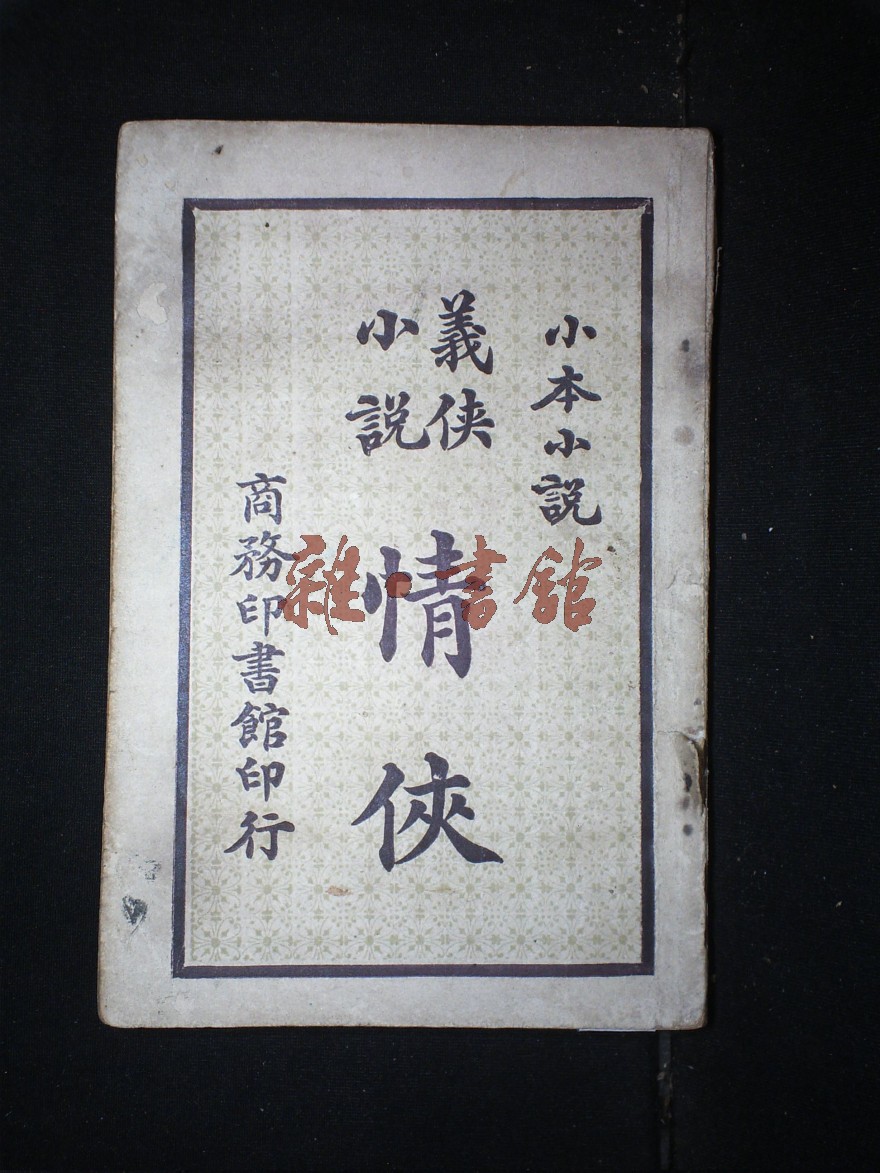 小本小説
義俠
小説
情俠
商務印書館印行
雜·書館